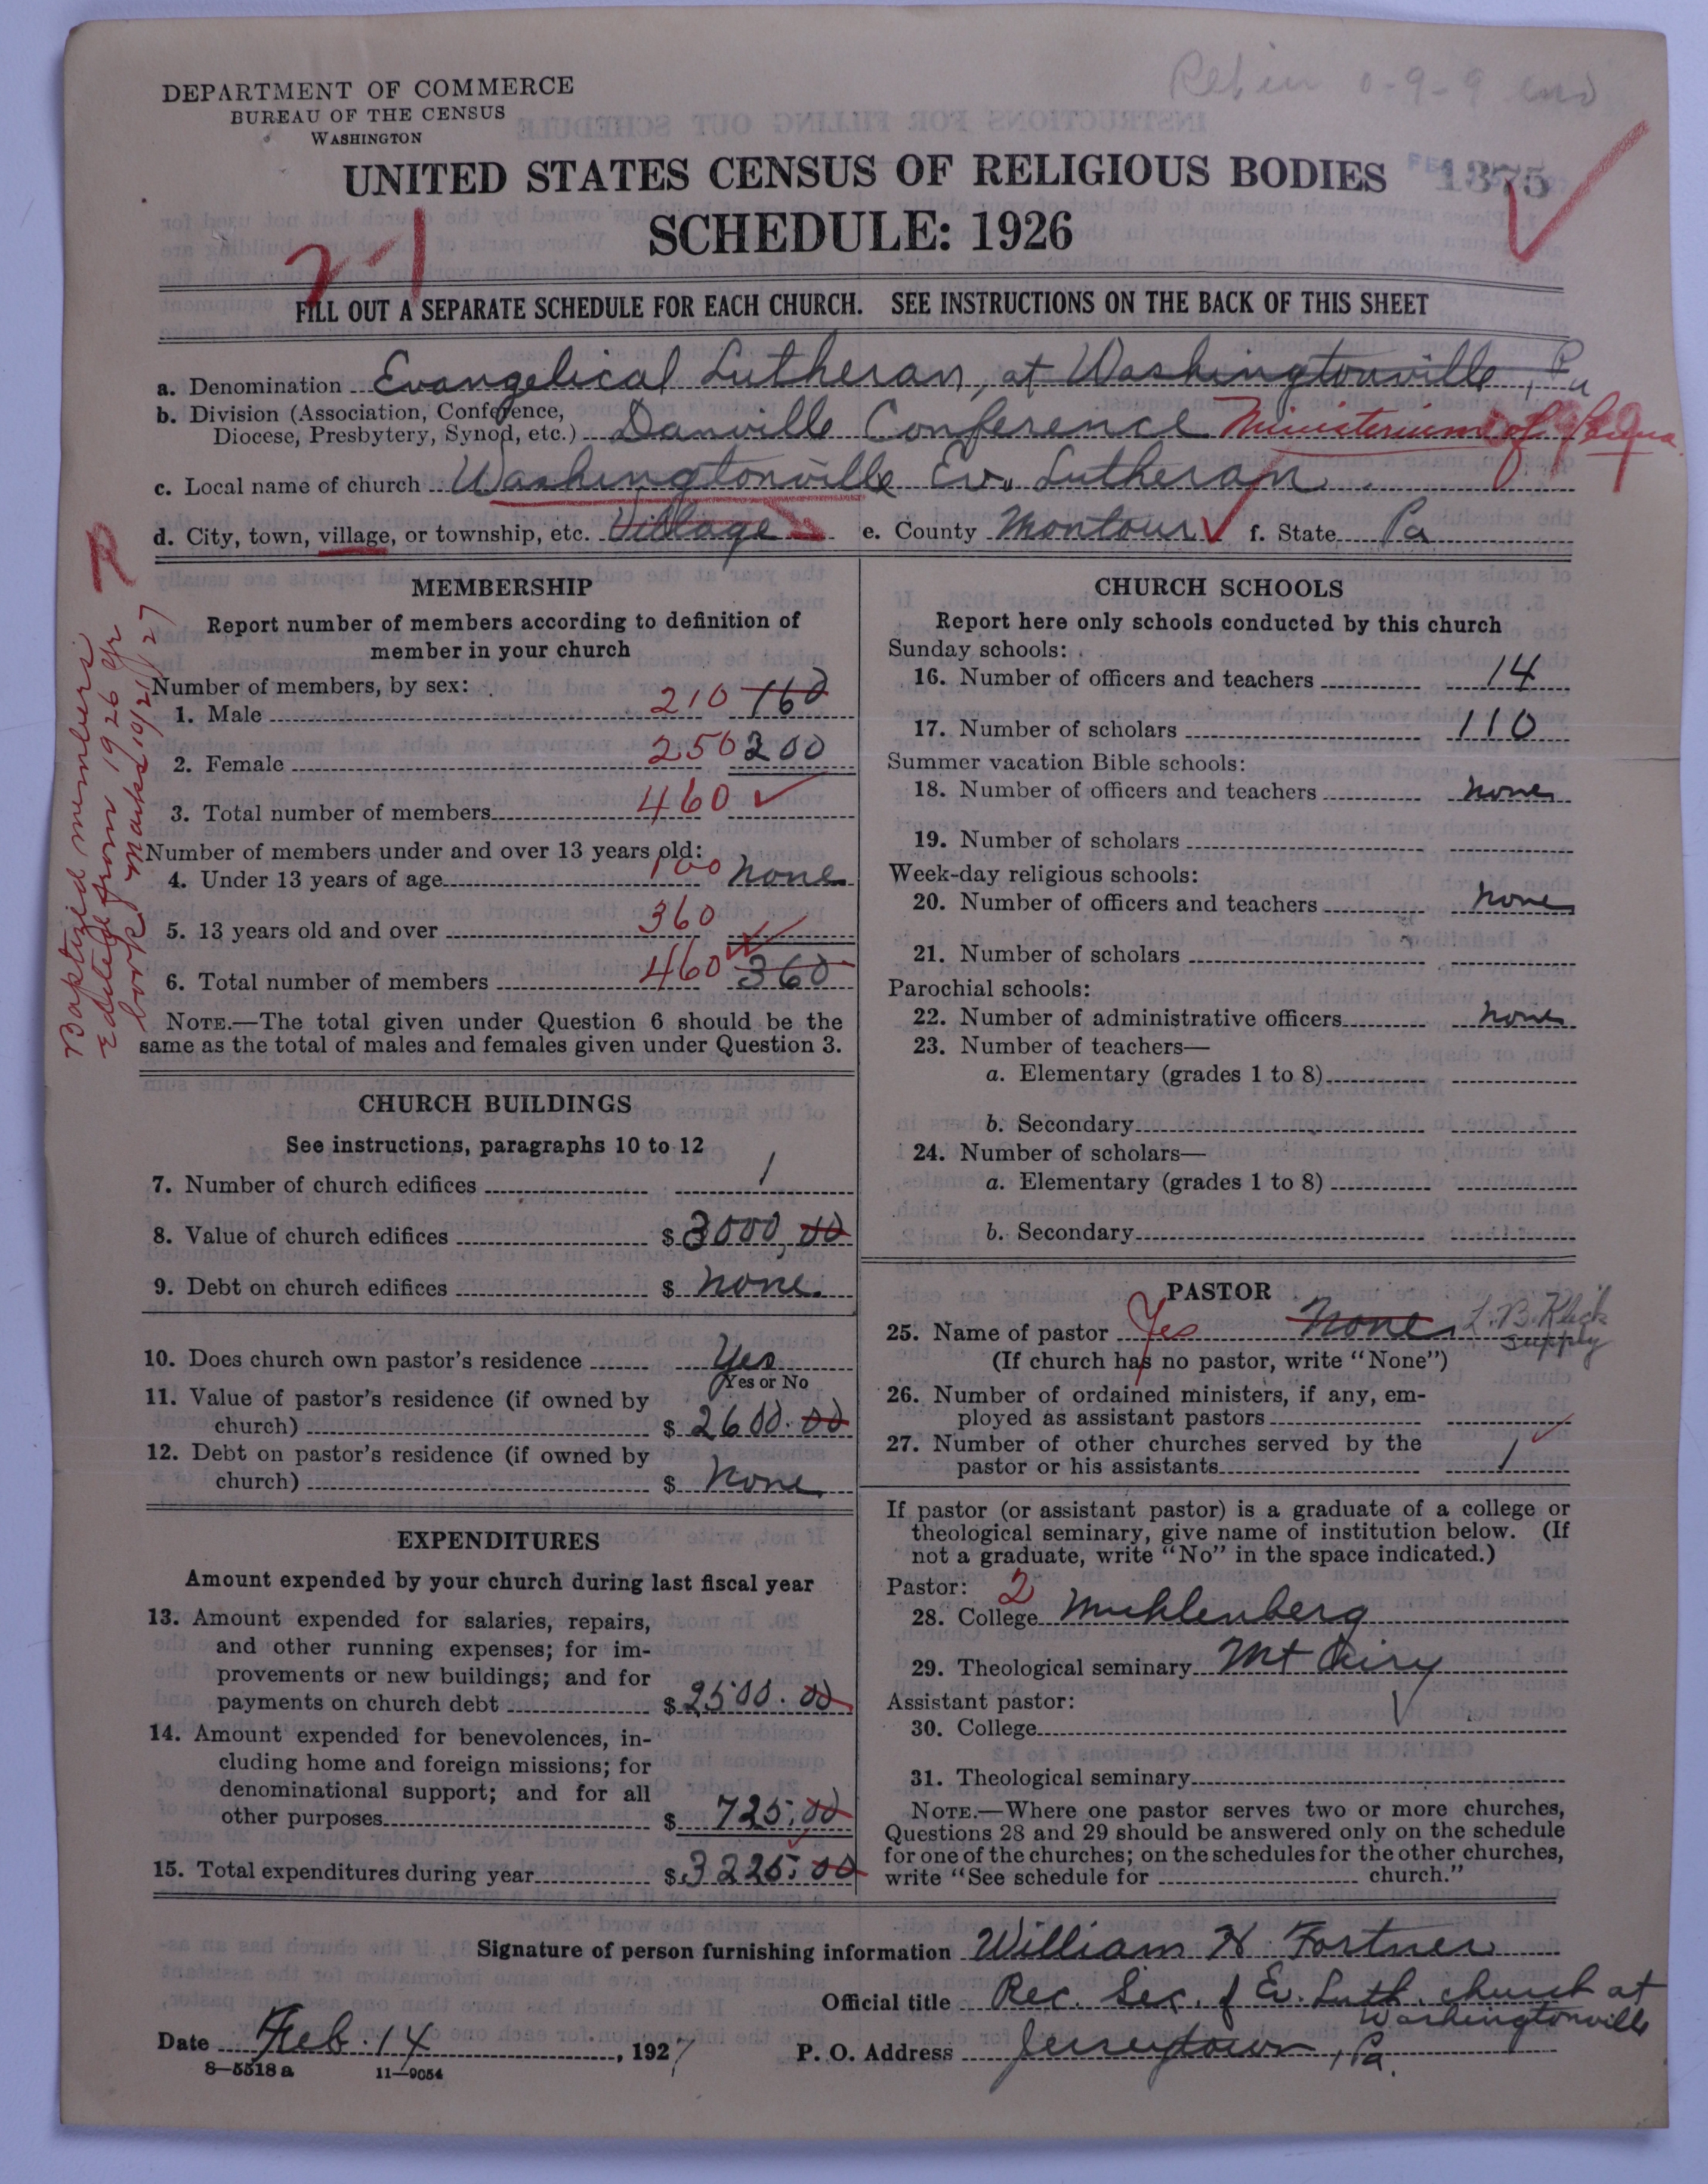 DEPARTMENT OF COMMERCE
BUREAU OF THE CENSUS
WASHINGTON
1375
UNITED STATES CENSUS OF RELIGIOUS BODIES
SCHEDULE: 1926
2-1
FILL OUT A SEPARATE SCHEDULE FOR EACH CHURCH. SEE INSTRUCTIONS ON THE BACK OF THIS SHEET
a. Denomination Evangelical Lutheran, at Washingtonville, Pa
b. Division (Association, Conference, Diocese, Presbytery, Synod, etc.) Danville Conference Ministerium of Penna
c. Local name of church Washingtonville Ev. Lutheran
d. City, town, village, or township, etc. Village e. County Montour f. State Pa
R
Baptized members
edited from 1926 yr
book Marks 10/21/27
MEMBERSHIP
Report number of members according to definition of
member in your church
Number of members, by sex:
1. Male 210 160
2. Female 250 200
3. Total number of members 460
Number of members under and over 13 years old:
4. Under 13 years of age 100 none
5. 13 years old and over 360
6. Total number of members 460 360
NOTE.—The total given under Question 6 should be the
same as the total of males and females given under Question 3.
CHURCH BUILDINGS
See instructions, paragraphs 10 to 12
7. Number of church edifices 1
8. Value of church edifices $ 3000,00
9. Debt on church edifices $ none.
10. Does church own pastor's residence Yes
Yes or No
11. Value of pastor's residence (if owned by
church) $ 2600.00
12. Debt on pastor's residence (if owned by
church) $ none
EXPENDITURES
Amount expended by your church during last fiscal year
13. Amount expended for salaries, repairs,
and other running expenses; for im-
provements or new buildings; and for
payments on church debt $ 2500.00
14. Amount expended for benevolences, in-
cluding home and foreign missions; for
denominational support; and for all
other purposes $ 725.00
15. Total expenditures during year $ 3225.00
CHURCH SCHOOLS
Report here only schools conducted by this church
Sunday schools:
16. Number of officers and teachers 14
17. Number of scholars 110
Summer vacation Bible schools:
18. Number of officers and teachers none
19. Number of scholars
Week-day religious schools:
20. Number of officers and teachers none
21. Number of scholars
Parochial schools:
22. Number of administrative officers none
23. Number of teachers—
a. Elementary (grades 1 to 8)
b. Secondary
24. Number of scholars—
a. Elementary (grades 1 to 8)
b. Secondary
PASTOR
25. Name of pastor Yes None L. B.
supply
(If church has no pastor, write "None")
26. Number of ordained ministers, if any, em-
ployed as assistant pastors
27. Number of other churches served by the
pastor or his assistants 1
If pastor (or assistant pastor) is a graduate of a college or
theological seminary, give name of institution below. (If
not a graduate, write "No" in the space indicated.)
Pastor: 2
28. College Muhlenberg
29. Theological seminary Mt Airy
Assistant pastor:
30. College
31. Theological seminary
NOTE.—Where one pastor serves two or more churches,
Questions 28 and 29 should be answered only on the schedule
for one of the churches; on the schedules for the other churches,
write "See schedule for church."
Signature of person furnishing information William H Fortner
Official title Rec. Sec. of Ev. Luth. church at
Washingtonville
Date Feb. 14, 1927 P. O. Address Jerseytown, Pa.
8—5518 a 11—9054